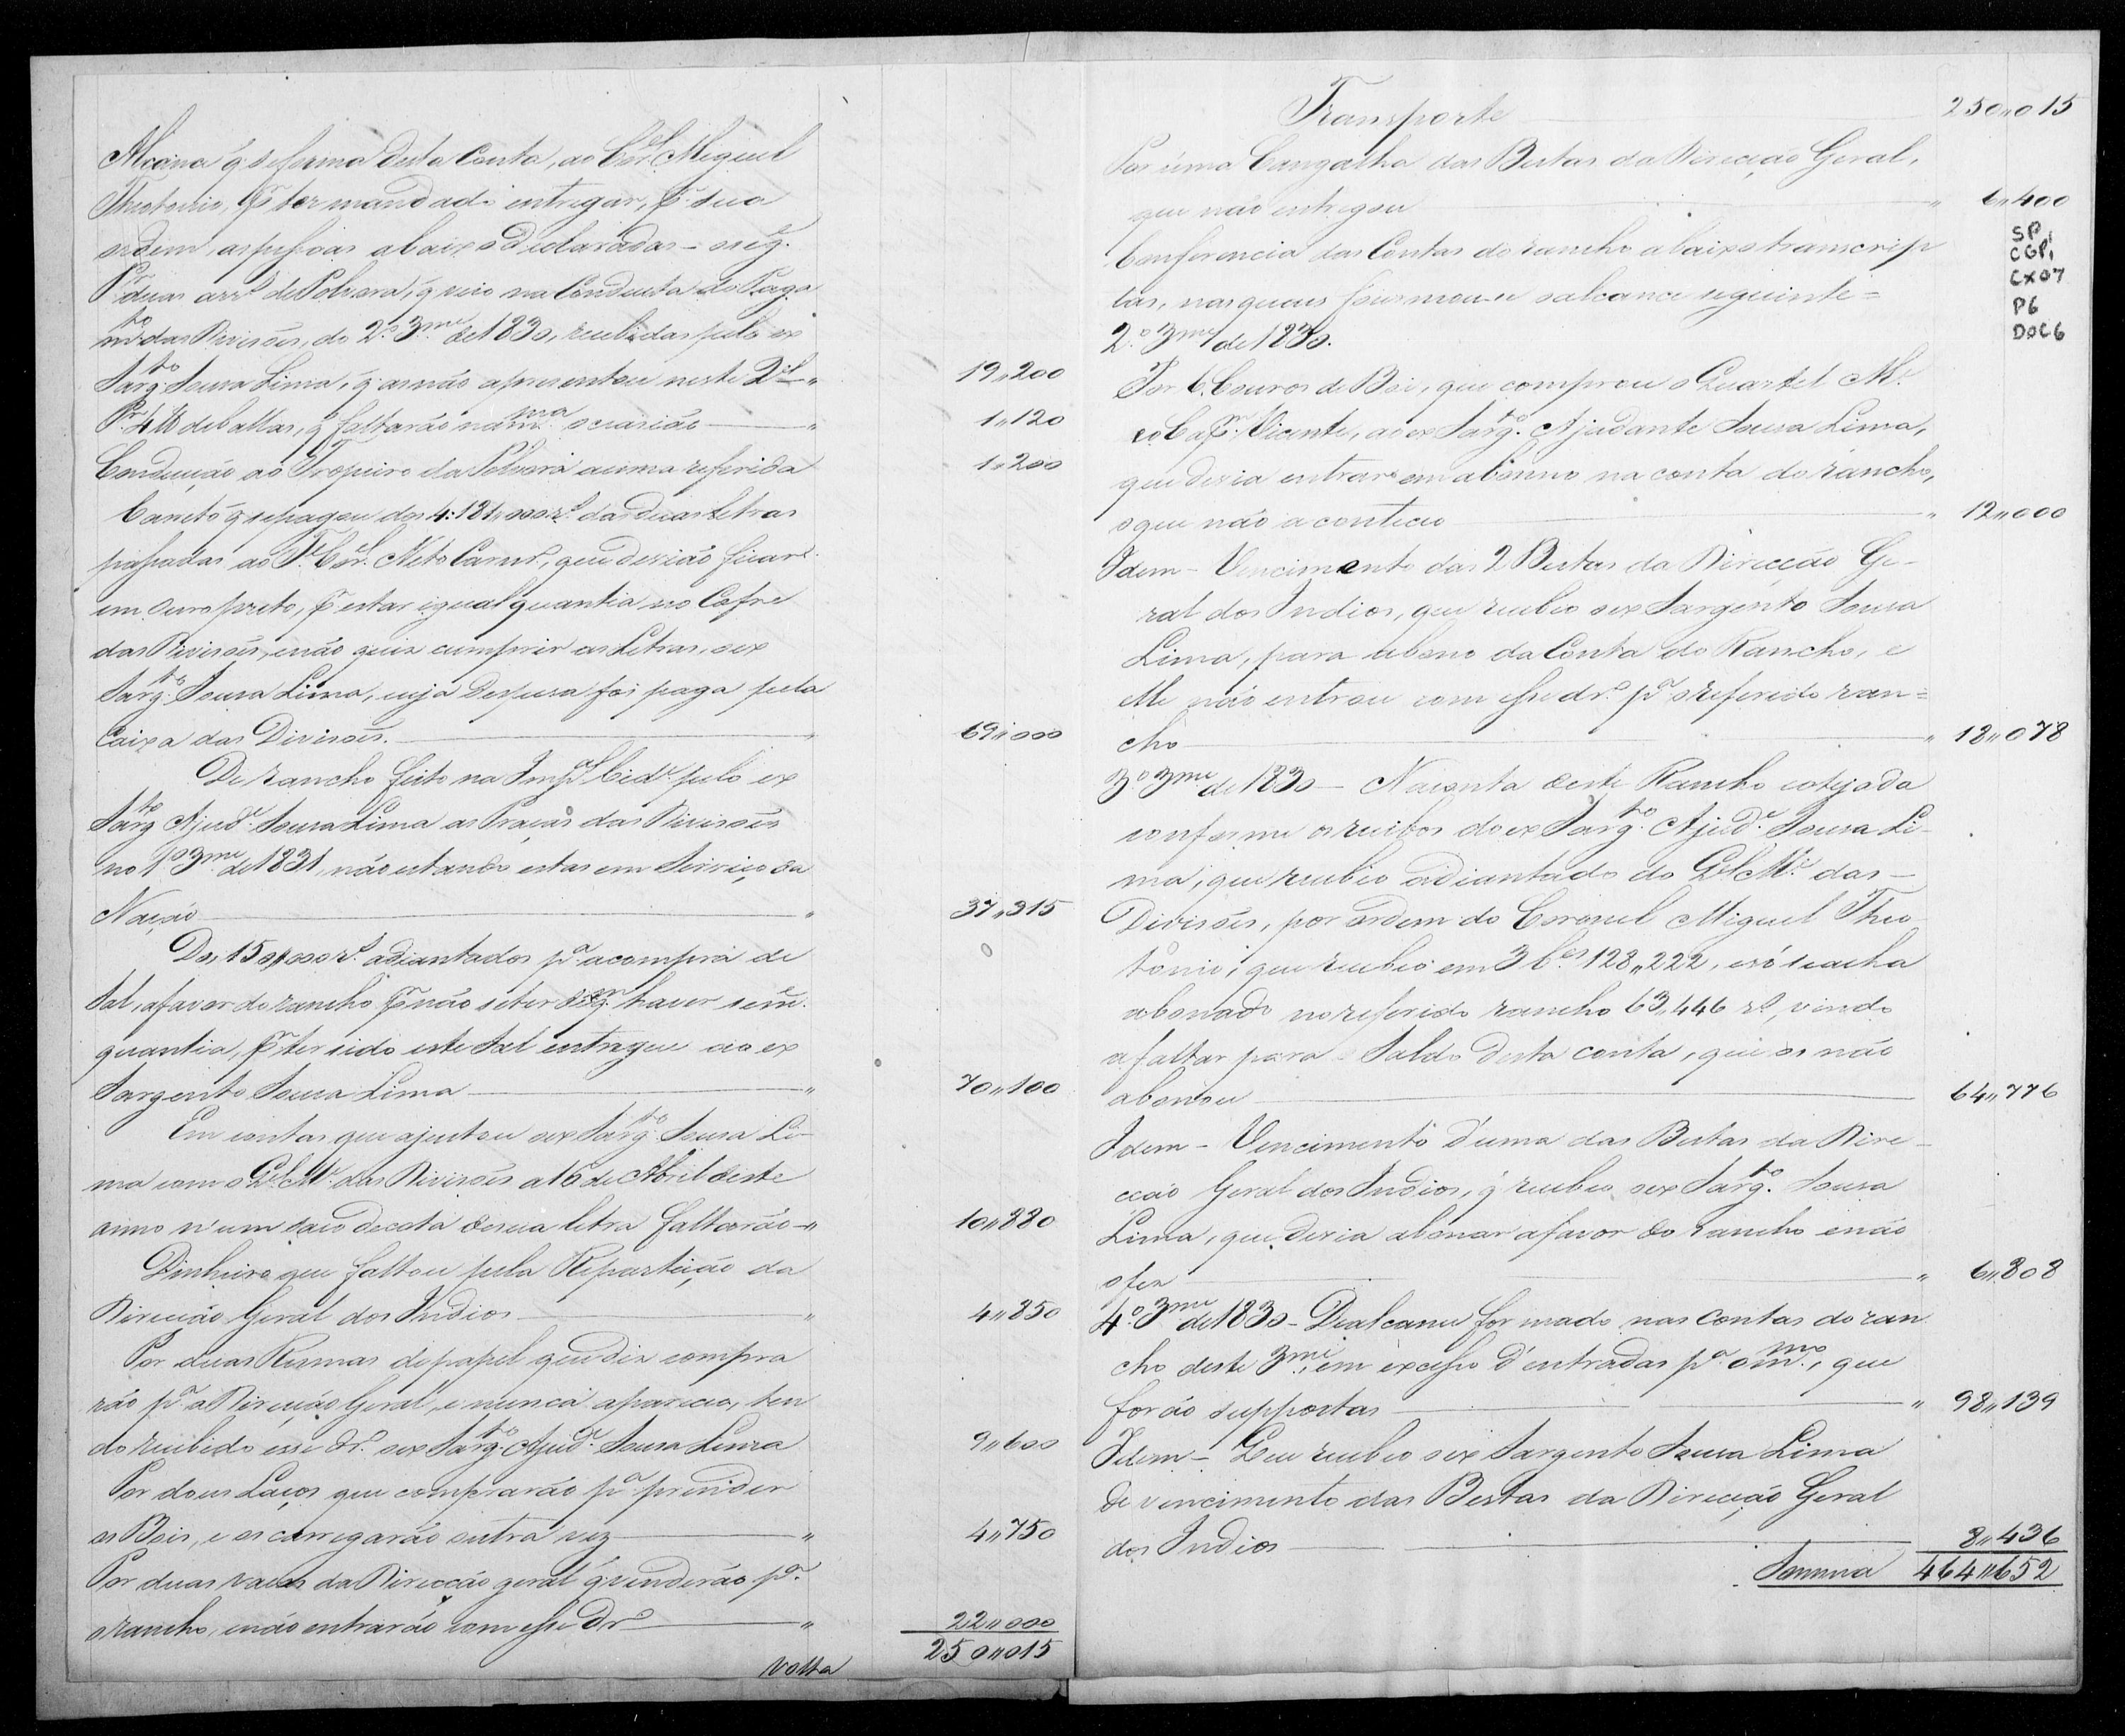 q. se forma desta Conta, ao Cor.el Miguel
Theotonio, p.r ter mandado entregar, p.r sua
ordem, as pessoas abaixo declaradas - o seg.e
P.r duas arr.s de Polvora, q veio na Conducta do Paga
m.to das Divisões, do 2.º 3.me de 1830, recebidas pelo ex
Sarg.to Sousa Lima, q. as não apresentou neste Q.el " 19,,200
P.r 4 lb de ballas, q faltarão na m.ma occasião " 1,,120
Conducção ao Tropeiro da Polvora acima referida 1,,200
Carreto q se pagou dos 4:181,,000 r.s das duas Letras
passadas ao T.e Cor.el Neto Carn.ro, que devião ficar
em Ouro preto, p.r estar igual quantia no Cofre
das Divisões, e não quiz cumprir as Letras, o ex
Sarg.to Sousa Lima, cuja Despesa foi paga pela
Caixa das Divisões. " 69,,000
De rancho feito na Imp.al Cid.e pelo ex
Sarg.to Ajud.e Sousa Lima as Praças das Divisões
no 1.º 3.me de 1831, não estando estas em Serviço da
Nação " 37,,315
Dos 150,,000 r.s adiantados p.a a compra de
Sal, a favor do rancho p.r não se ter haver
quantia, p.r ter sido este Sal entregue ao ex
Sargento Sousa Lima " 70,,100
Em contas que ajustou o ex Sarg.to Sousa Li-
ma com o Q.el M.e das Divisões a 16 de Abril deste
anno n'um de sua letra faltarão " 10,,880
Dinheiro que faltou pela Repartição da
Direcção Geral dos Indios " 4,,850
Por duas Resmas de papel que diz compra
rão p.a a Direcção Geral, e nunca apareceo, ten
do recebido esse dr.º o ex Sarg.to Ajud.e Sousa Lima 9,,600
Por dous Laços que comprarão p.a prender
os Bois, e os carregarão outra vez " 4,,750
Por duas vacas da Direcção geral q venderão p.a
o rancho, e não entrarão com esse Dr.º " 22,,000
250,,015
volta
Transporte 250,,015
Por uma Cangalha das Bestas da Direcção Geral,
que não entregou " 6,,400
Conferencia das Contas do rancho abaixo transcrip
tas, nas quaes formou-se o alcance seguinte=
2.º 3.me de 1830.
Por 6 Couros de Boi, que comprou o Quartel M.e
e o Cap.m Vicente, ao ex Sarg.to Ajudante Sousa Lima,
que devia entrar em abonno na conta do rancho,
o que não aconteceo " 12,,000
Idem - Vencimento das 2 Bestas da Direcção Ge-
ral dos Indios, que recebeo o ex Sargento Sousa
Lima, para abono da Conta do Rancho, e
elle não entrou com esse dr.º p.a o referido ran=
cho " 18,,078
3.º 3.me de 1830 - Na conta deste Rancho cotejada
conforme os recibos do ex Sarg.to Ajud.e Sousa Li-
ma, que recebeo adiantado do Q.el M.e das -
Divisões, por ordem do Coronel Miguel Theo
tonio, que recebeo em 3 128,,222, e só se acha
abonado no referido rancho 63,,446 r.s, vindo
a faltar para Saldo desta conta, que os não
abonou 64,,776
Idem - Vencimento d'uma das Bestas da Dire-
cção Geral dos Indios, q recebeo o ex Sarg.to Sousa
Lima, que devia abonar a favor do rancho e não
o fez " 6,,808
4.º 3.me de 1830 - De alcance formado nas contas do ran
cho deste 3.me, em excesso d'entradas p.a o m.mo, que
forão suppostas " 98,,139
Idem - Que recebeo o ex Sargento Sousa Lima
de vencimento das Bestas da Direcção Geral
dos Indios 8,,436
Somma 464,,652
SP,
CGP,
CX07
P6
DOC6